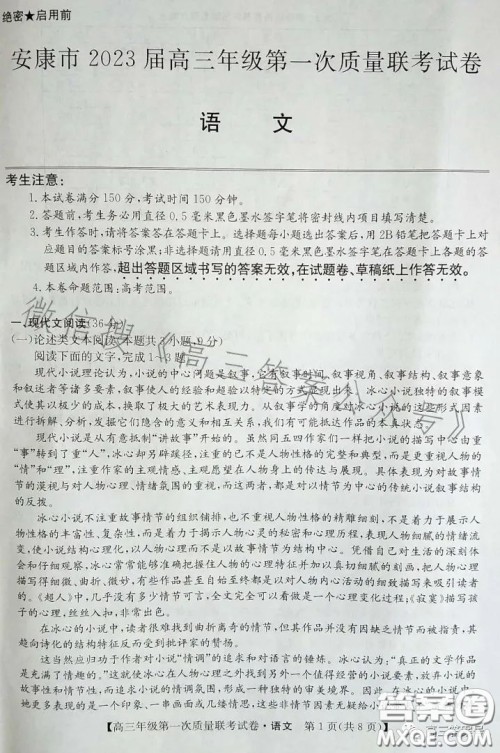 绝密★启用前
安康市2023届高三年级第一次质量联考试卷
语 文
考生注意:
1. 本试卷满分150分,考试时间150分钟。
2. 答题前,考生务必用直径0.5毫米黑色墨水签字笔将密封线内项目填写清楚。
3. 考生作答时,请将答案答在答题卡上。选择题每小题选出答案后,用2B铅笔把答题卡上对
应题目的答案标号涂黑;非选择题请用直径0.5毫米黑色墨水签字笔在答题卡上各题的答
题区域内作答,超出答题区域书写的答案无效,在试题卷、草稿纸上作答无效。
4. 本卷命题范围:高考范围。
一、现代文阅读(36分)
(一)论述类文本阅读(本题共3小题,9分)
阅读下面的文字,完成1~3题。
现代小说理论认为,小说的中心问题是叙事,它有叙事时间、叙事视角、叙事结构、叙事意象
和叙述者等诸多要素,叙事使人的经验和超验以特定的方式显现出来。冰心小说独特的叙事模
式使其以极少的成本,换取了极大的艺术表现力。从叙事学的角度对冰心小说的这些形式因素
进行拆解、分析,发掘它们隐含的意义和相互关系,我们有可能抵达作品的本质。
现代小说是从有意抵制“讲故事”开始的。虽然同五四作家们一样把小说的描写中心由重
“事”转到了重“人”,冰心却另辟蹊径,注重的也不是人物性格的完整和典型,而是更重视人物的
“情”和“理”,注重作家的主观情感、主观感觉在人物身上的传达与展示。具体表现为对故事情
节的漠视与对人物心理、情绪氛围的重视,而这两者,都是对以情节为中心的传统小说叙事结构
的反拨。
冰心小说不注重故事情节的组织铺排,也不重视人物性格的精雕细刻,不是着力于展示人物
性格的丰富性、复杂性,而是着力于揭示人物心灵的秘密和心理历程,表现人物细腻的情绪流
变,使小说结构心理化,以人物心理而不是以故事情节为结构中心。凭借自己对生活的深刻体
会和仔细观察,冰心常常能够准确把握住人物的心理特征并加以真切细腻的刻画,把人物心理
描写得细城、曲折、微妙,有些作品甚至自始至终都是以对人物内心活动的细致描写来吸引读者
的。《超人》中,几乎没有多少情节可言,全文可以看做是一个心理变化过程;《寂寞》描写孩
子的心理,丝丝入扣,非常出色。
在冰心的小说中,读者很难找到曲折离奇的情节,但其作品并没有因缺乏情节而被指责,其
趋向诗化的结构特征反而受到批评家的赞扬。
这当然应归功于作者对小说“情调”的追求和对语言的锤炼。冰心认为:“真正的文学作品,